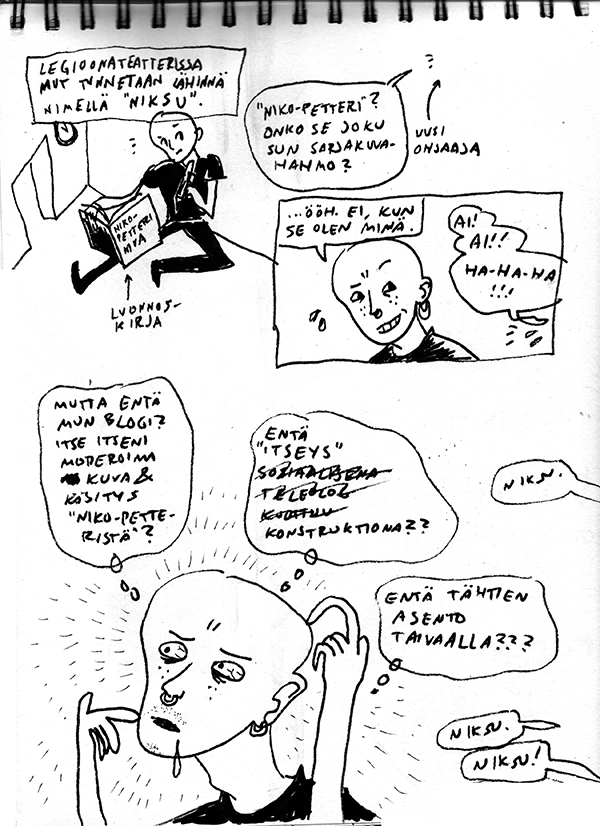 LEGIOONATEATTERISSA
MUT TUNNETAAN LÄHINNÄ
NIMELLÄ "NIKSU".
NIKO-
PETTERI
MYA
LUONNOS-
KIRJA
"NIKO-PETTERI"?
ONKO SE JOKU
SUN SARJAKUVA-
HAHMO?
?
UUSI
OHJAAJA
...ÖÖH. EI, KUN
SE OLEN MINÄ.
AI!
AI!!
HA-HA-HA
!!!
MUTTA ENTÄ
MUN BLOGI?
ITSE ITSENI
MODEROIMA
KUVA &
KÄSITYS
"NIKO-PETTE-
RISTÄ"?
ENTÄ
"ITSEYS"
KONSTRUKTIONA??
NIKSU.
ENTÄ TÄHTIEN
ASENTO
TAIVAALLA???
NIKSU.
NIKSU!